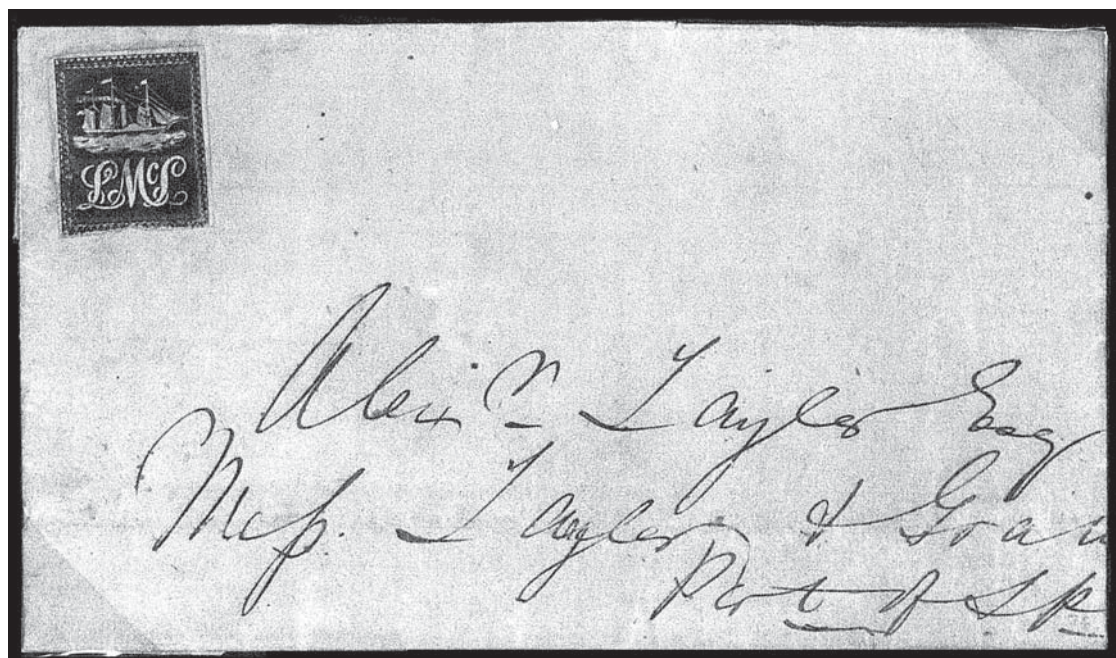 LMcL
Alexr Taylor Esq
Mess. Taylor & Gran
Port of Sp